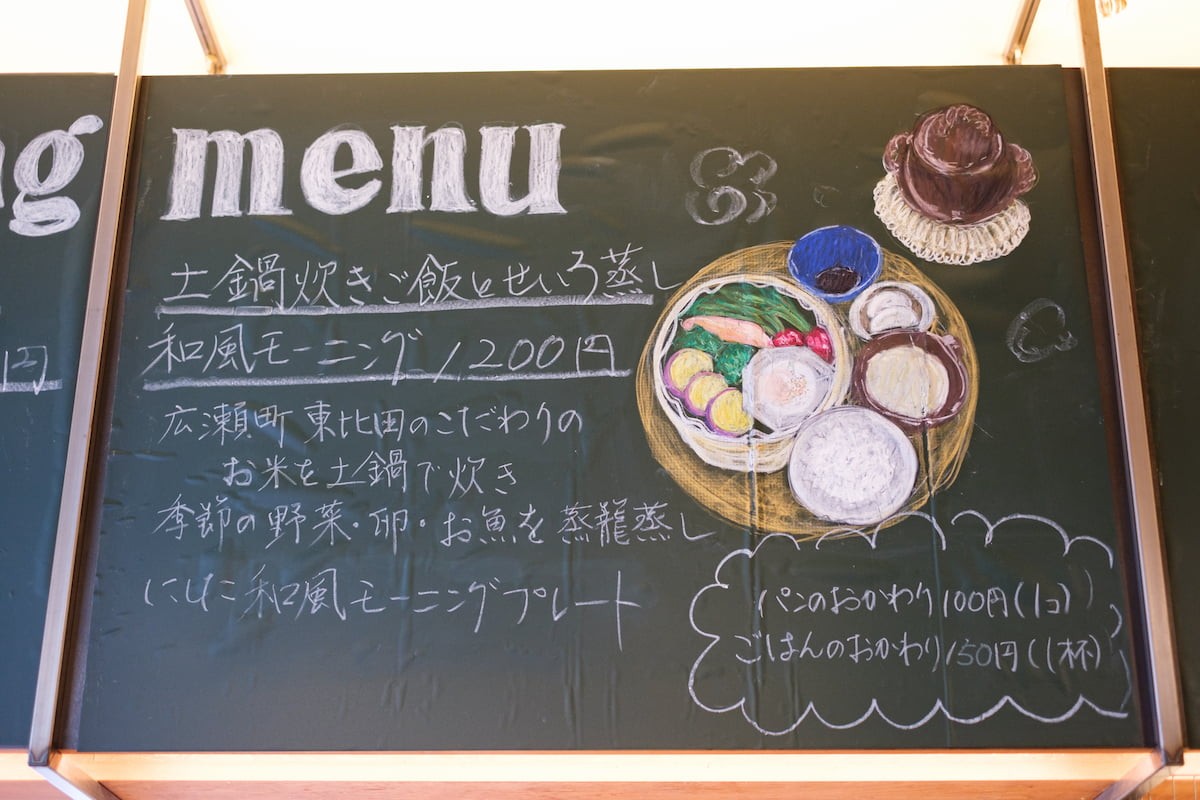 g menu
円
土鍋炊きご飯とせいろ蒸し
和風モーニング 1200円
広瀬町 東比田のこだわりの
お米を土鍋で炊き
季節の野菜・卵・お魚を 蒸籠蒸し
にした 和風モーニングプレート
パンのおかわり 100円(1コ)
ごはんのおかわり 150円(1杯)